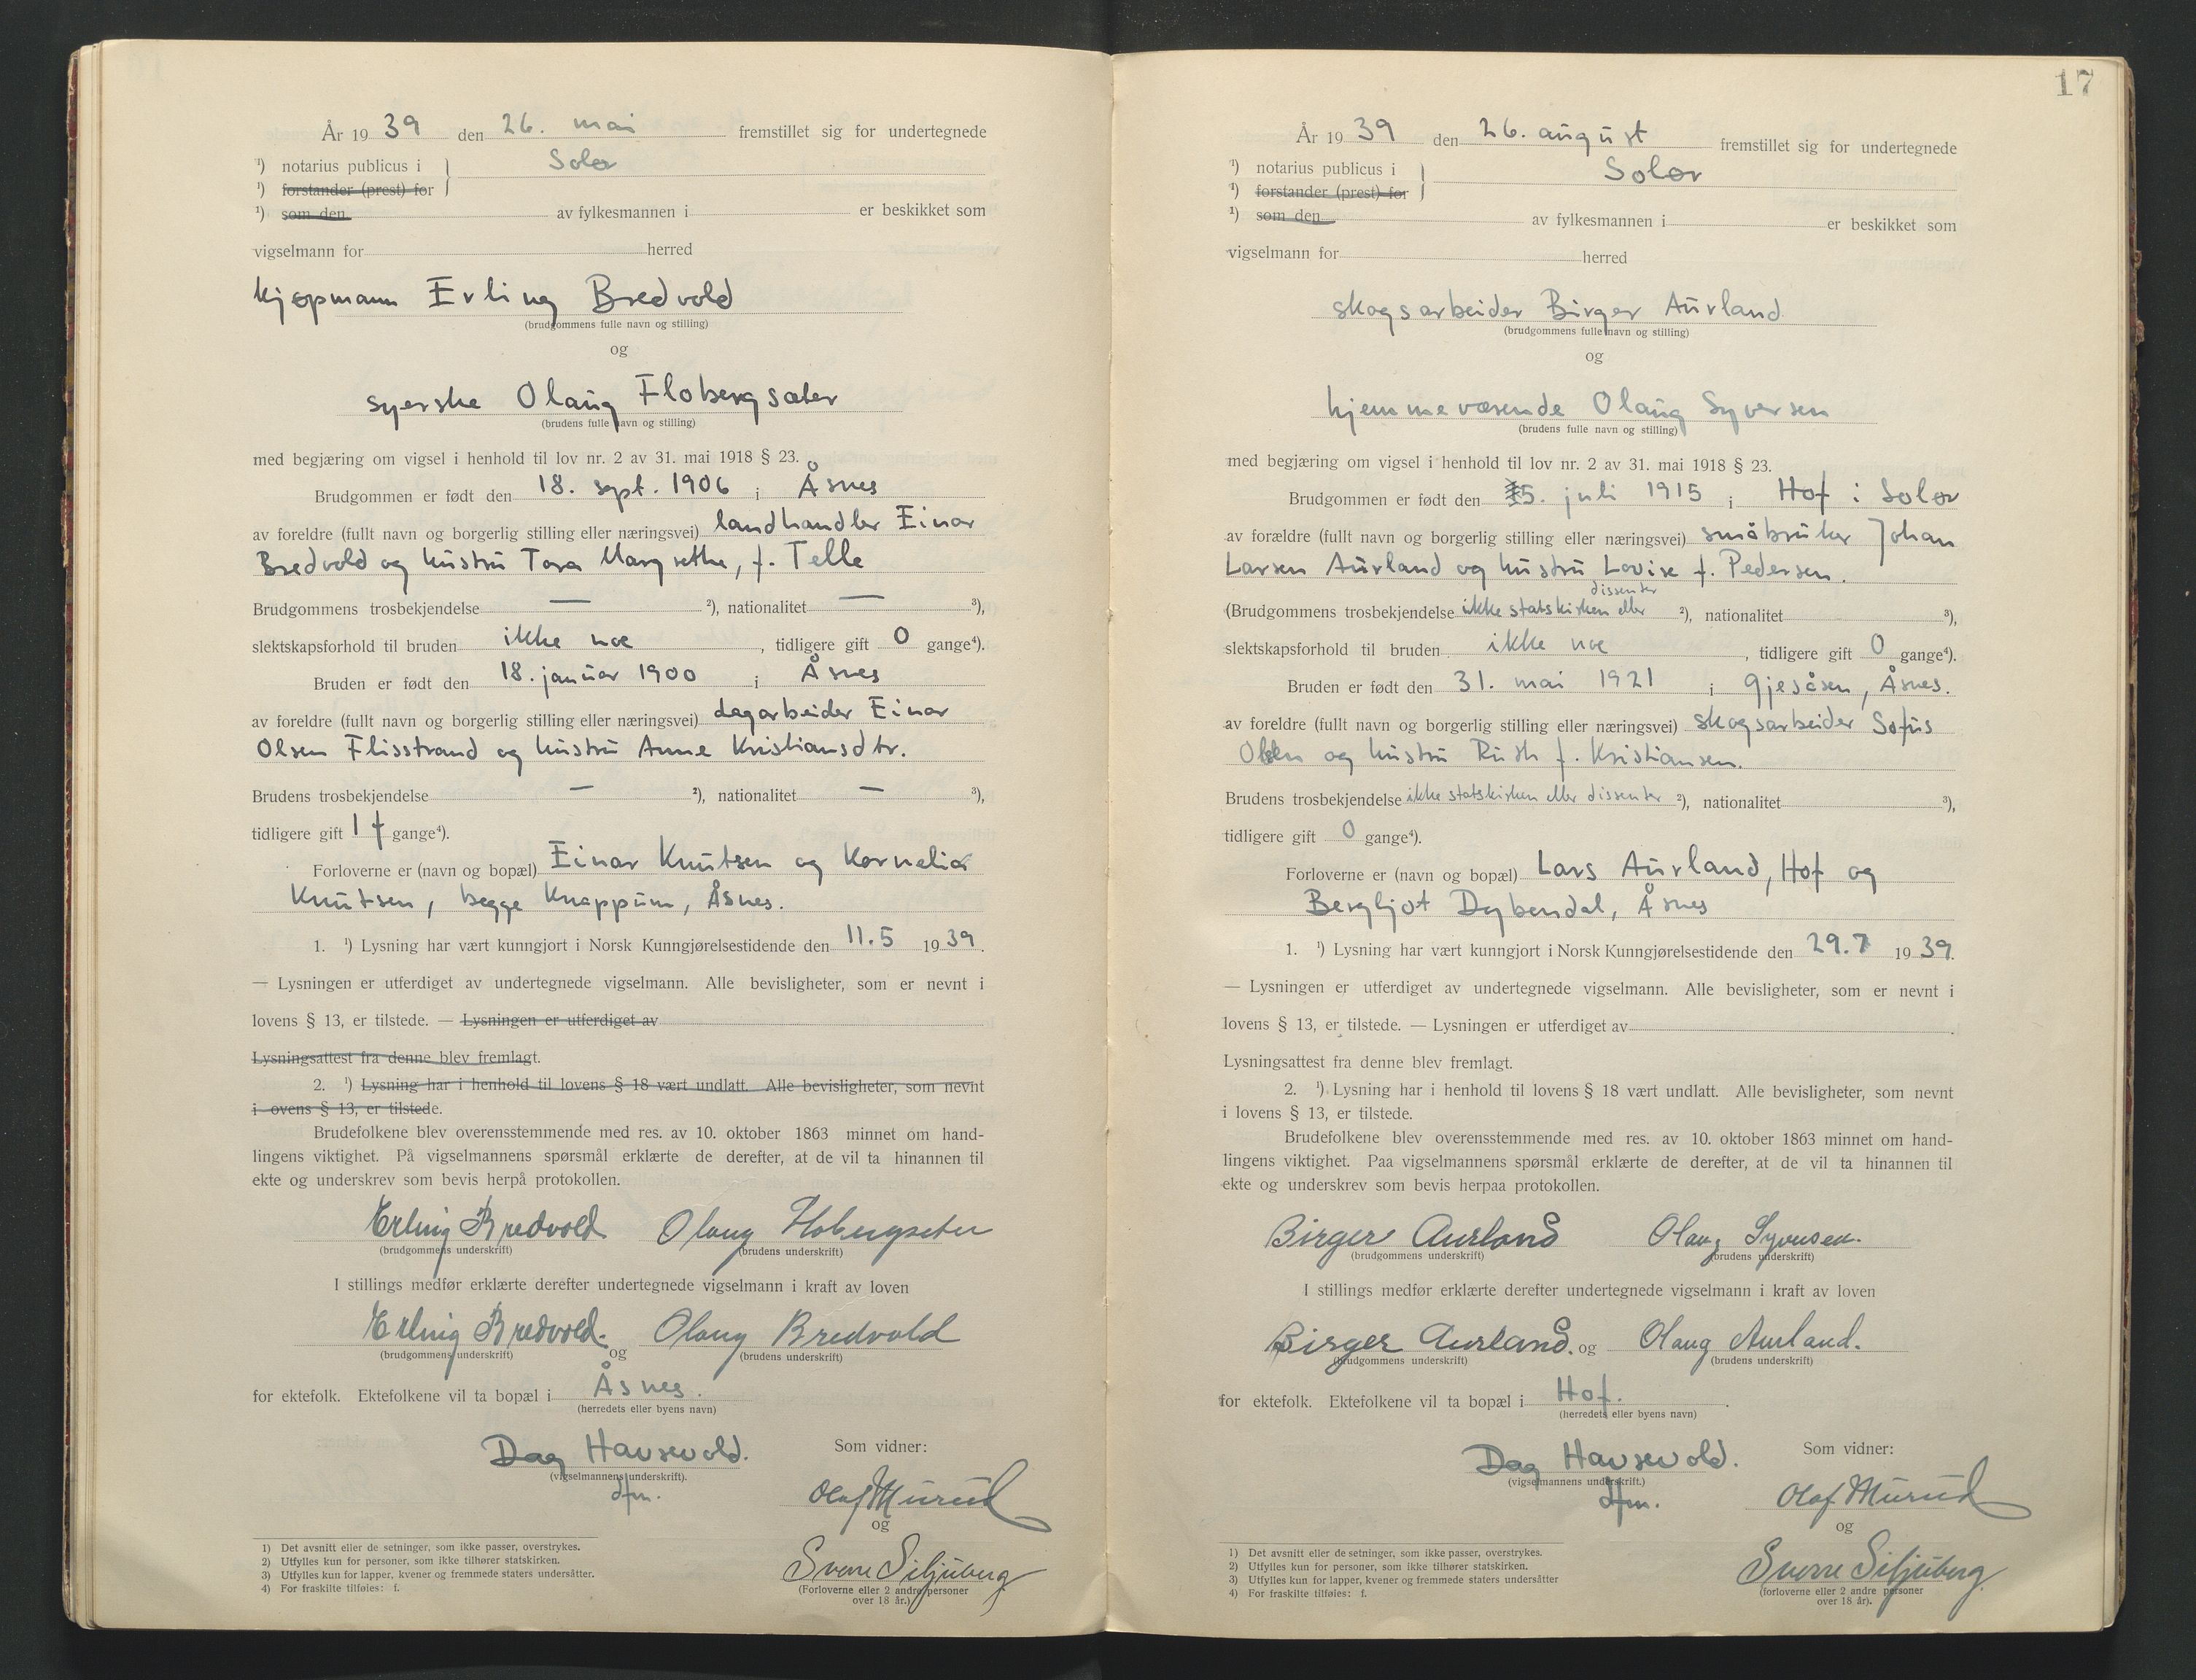 År 19 39 den 26. mai fremstillet sig for undertegnede
¹) notarius publicus i Solør
¹) forstander (prest) for
¹) som den av fylkesmannen i er beskikket som
vigselmann for herred
kjøpmann Erling Bredvold
(brudgommens fulle navn og stilling)
og
syerske Olaug Flobergsæter
(brudens fulle navn og stilling)
med begjæring om vigsel i henhold til lov nr. 2 av 31. mai 1918 § 23.
Brudgommen er født den 18. sept. 1906 i Åsnes
av foreldre (fullt navn og borgerlig stilling eller næringsvei) landhandler Einar
Bredvold og hustru Tora Margrethe, f. Telle
Brudgommens trosbekjendelse — ²), nationalitet — ³),
slektskapsforhold til bruden ikke noe, tidligere gift 0 gange⁴).
Bruden er født den 18. januar 1900 i Åsnes
av foreldre (fullt navn og borgerlig stilling eller næringsvei) dagarbeider Einar
Olsen Flisstrand og hustru Anne Kristiansdtr.
Brudens trosbekjendelse — ²), nationalitet — ³),
tidligere gift 1 f gange⁴).
Forloverne er (navn og bopæl) Einar Knutsen og Kornelia
Knutsen, begge Knappum, Åsnes.
1. ¹) Lysning har vært kunngjort i Norsk Kunngjørelsestidende den 11.5 19 39.
— Lysningen er utferdiget av undertegnede vigselmann. Alle bevisligheter, som er nevnt i
lovens § 13, er tilstede. — Lysningen er utferdiget av
Lysningsattest fra denne blev fremlagt.
2. ¹) Lysning har i henhold til lovens § 18 vært undlatt. Alle bevisligheter, som nevnt
i ovens § 13, er tilstede.
Brudefolkene blev overensstemmende med res. av 10. oktober 1863 minnet om hand-
lingens viktighet. På vigselmannens spørsmål erklærte de derefter, at de vil ta hinannen til
ekte og underskrev som bevis herpå protokollen.
Erling Bredvold Olaug Flobergseter
(brudgommens underskrift) (brudens underskrift)
I stillings medfør erklærte derefter undertegnede vigselmann i kraft av loven
Erling Bredvold. og Olaug Bredvold
(brudgommens underskrift) (brudens underskrift)
for ektefolk. Ektefolkene vil ta bopæl i Åsnes.
(herredets eller byens navn)
Dag Hausevold. Som vidner:
(vigselmannens underskrift).
dfm. Olaf Murud
og
Sverre Siljuberg
(Forloverne eller 2 andre personer
over 18 år.)
1) Det avsnitt eller de setninger, som ikke passer, overstrykes.
2) Utfylles kun for personer, som ikke tilhører statskirken.
3) Utfylles kun for lapper, kvener og fremmede staters undersåtter.
4) For fraskilte tilføies: f.
17
År 19 39 den 26. august fremstillet sig for undertegnede
¹) notarius publicus i Solør
¹) forstander (prest) for
¹) som den av fylkesmannen i er beskikket som
vigselmann for herred
skogsarbeider Birger Aurland
(brudgommens fulle navn og stilling)
og
hjemmeværende Olaug Syversen
(brudens fulle navn og stilling)
med begjæring om vigsel i henhold til lov nr. 2 av 31. mai 1918 § 23.
Brudgommen er født den 5. juli 1915 i Hof i Solør
av forældre (fullt navn og borgerlig stilling eller næringsvei) småbruker Johan
Larsen Aurland og hustru Lovise f. Pedersen.
dissenter
(Brudgommens trosbekjendelse ikke statskirken eller ²), nationalitet ³),
slektskapsforhold til bruden ikke noe, tidligere gift 0 gange⁴).
Bruden er født den 31. mai 1921 i Gjesåsen, Åsnes.
av foreldre (fullt navn og borgerlig stilling eller næringsvei) skogsarbeider Sofus
Olsen og hustru Ruth f. Kristiansen.
Brudens trosbekjendelse ikke statskirken eller dissenter ²), nationalitet ³),
tidligere gift 0 gange⁴).
Forloverne er (navn og bopæl) Lars Aurland, Hof og
Bergljot Dybendal, Åsnes
1. ¹) Lysning har vært kunngjort i Norsk Kunngjørelsestidende den 29.7 19 39.
— Lysningen er utferdiget av undertegnede vigselmann. Alle bevisligheter, som er nevnt i
lovens § 13, er tilstede. — Lysningen er utferdiget av
Lysningsattest fra denne blev fremlagt.
2. ¹) Lysning har i henhold til lovens § 18 vært undlatt. Alle bevisligheter, som nevnt
i lovens § 13, er tilstede.
Brudefolkene blev overensstemmende med res. av 10. oktober 1863 minnet om hand-
lingens viktighet. Paa vigselmannens spørsmål erklærte de derefter, at de vil ta hinannen til
ekte og underskrev som bevis herpaa protokollen.
Birger Aurland Olaug Syversen.
(brudgommens underskrift) (brudens underskrift)
I stillings medfør erklærte derefter undertegnede vigselmann i kraft av loven
Birger Aurland. og Olaug Aurland.
(brudgommens underskrift) (brudens underskrift)
for ektefolk. Ektefolkene vil ta bopæl i Hof.
(herredets eller byens navn)
Dag Hausevold. Som vidner:
(vigselmannens underskrift.)
dfm. Olaf Murud
og
Sverre Siljuberg
(forloverne eller 2 andre personer
over 18 år).
1) Det avsnitt eller de setninger, som ikke passer, overstrykes.
2) Utfylles kun for personer, som ikke tilhører statskirken.
3) Utfylles kun for lapper, kvener og fremmede staters undersåtter
4) For fraskilte tilføies: f.